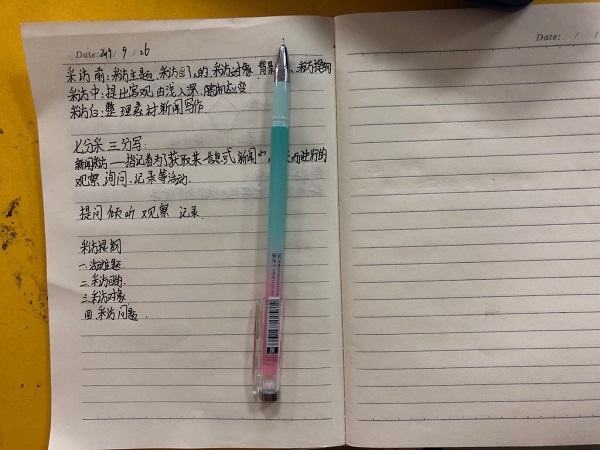 Date: 2019 / 9 / 26
Date: / /
采访前:采访主题,采访目的,采访对象,背景 采访提纲
采访中:提出客观由浅入深,随机应变
采访后:整理素材新闻写作
七分采 三分写:
新闻采访——指记者为了获取 新闻 而进行的
观察,询问,记录等活动.
提问 倾听 观察 记录
采访提纲
一.
二.采访目的
三.采访对象
四.采访问题.